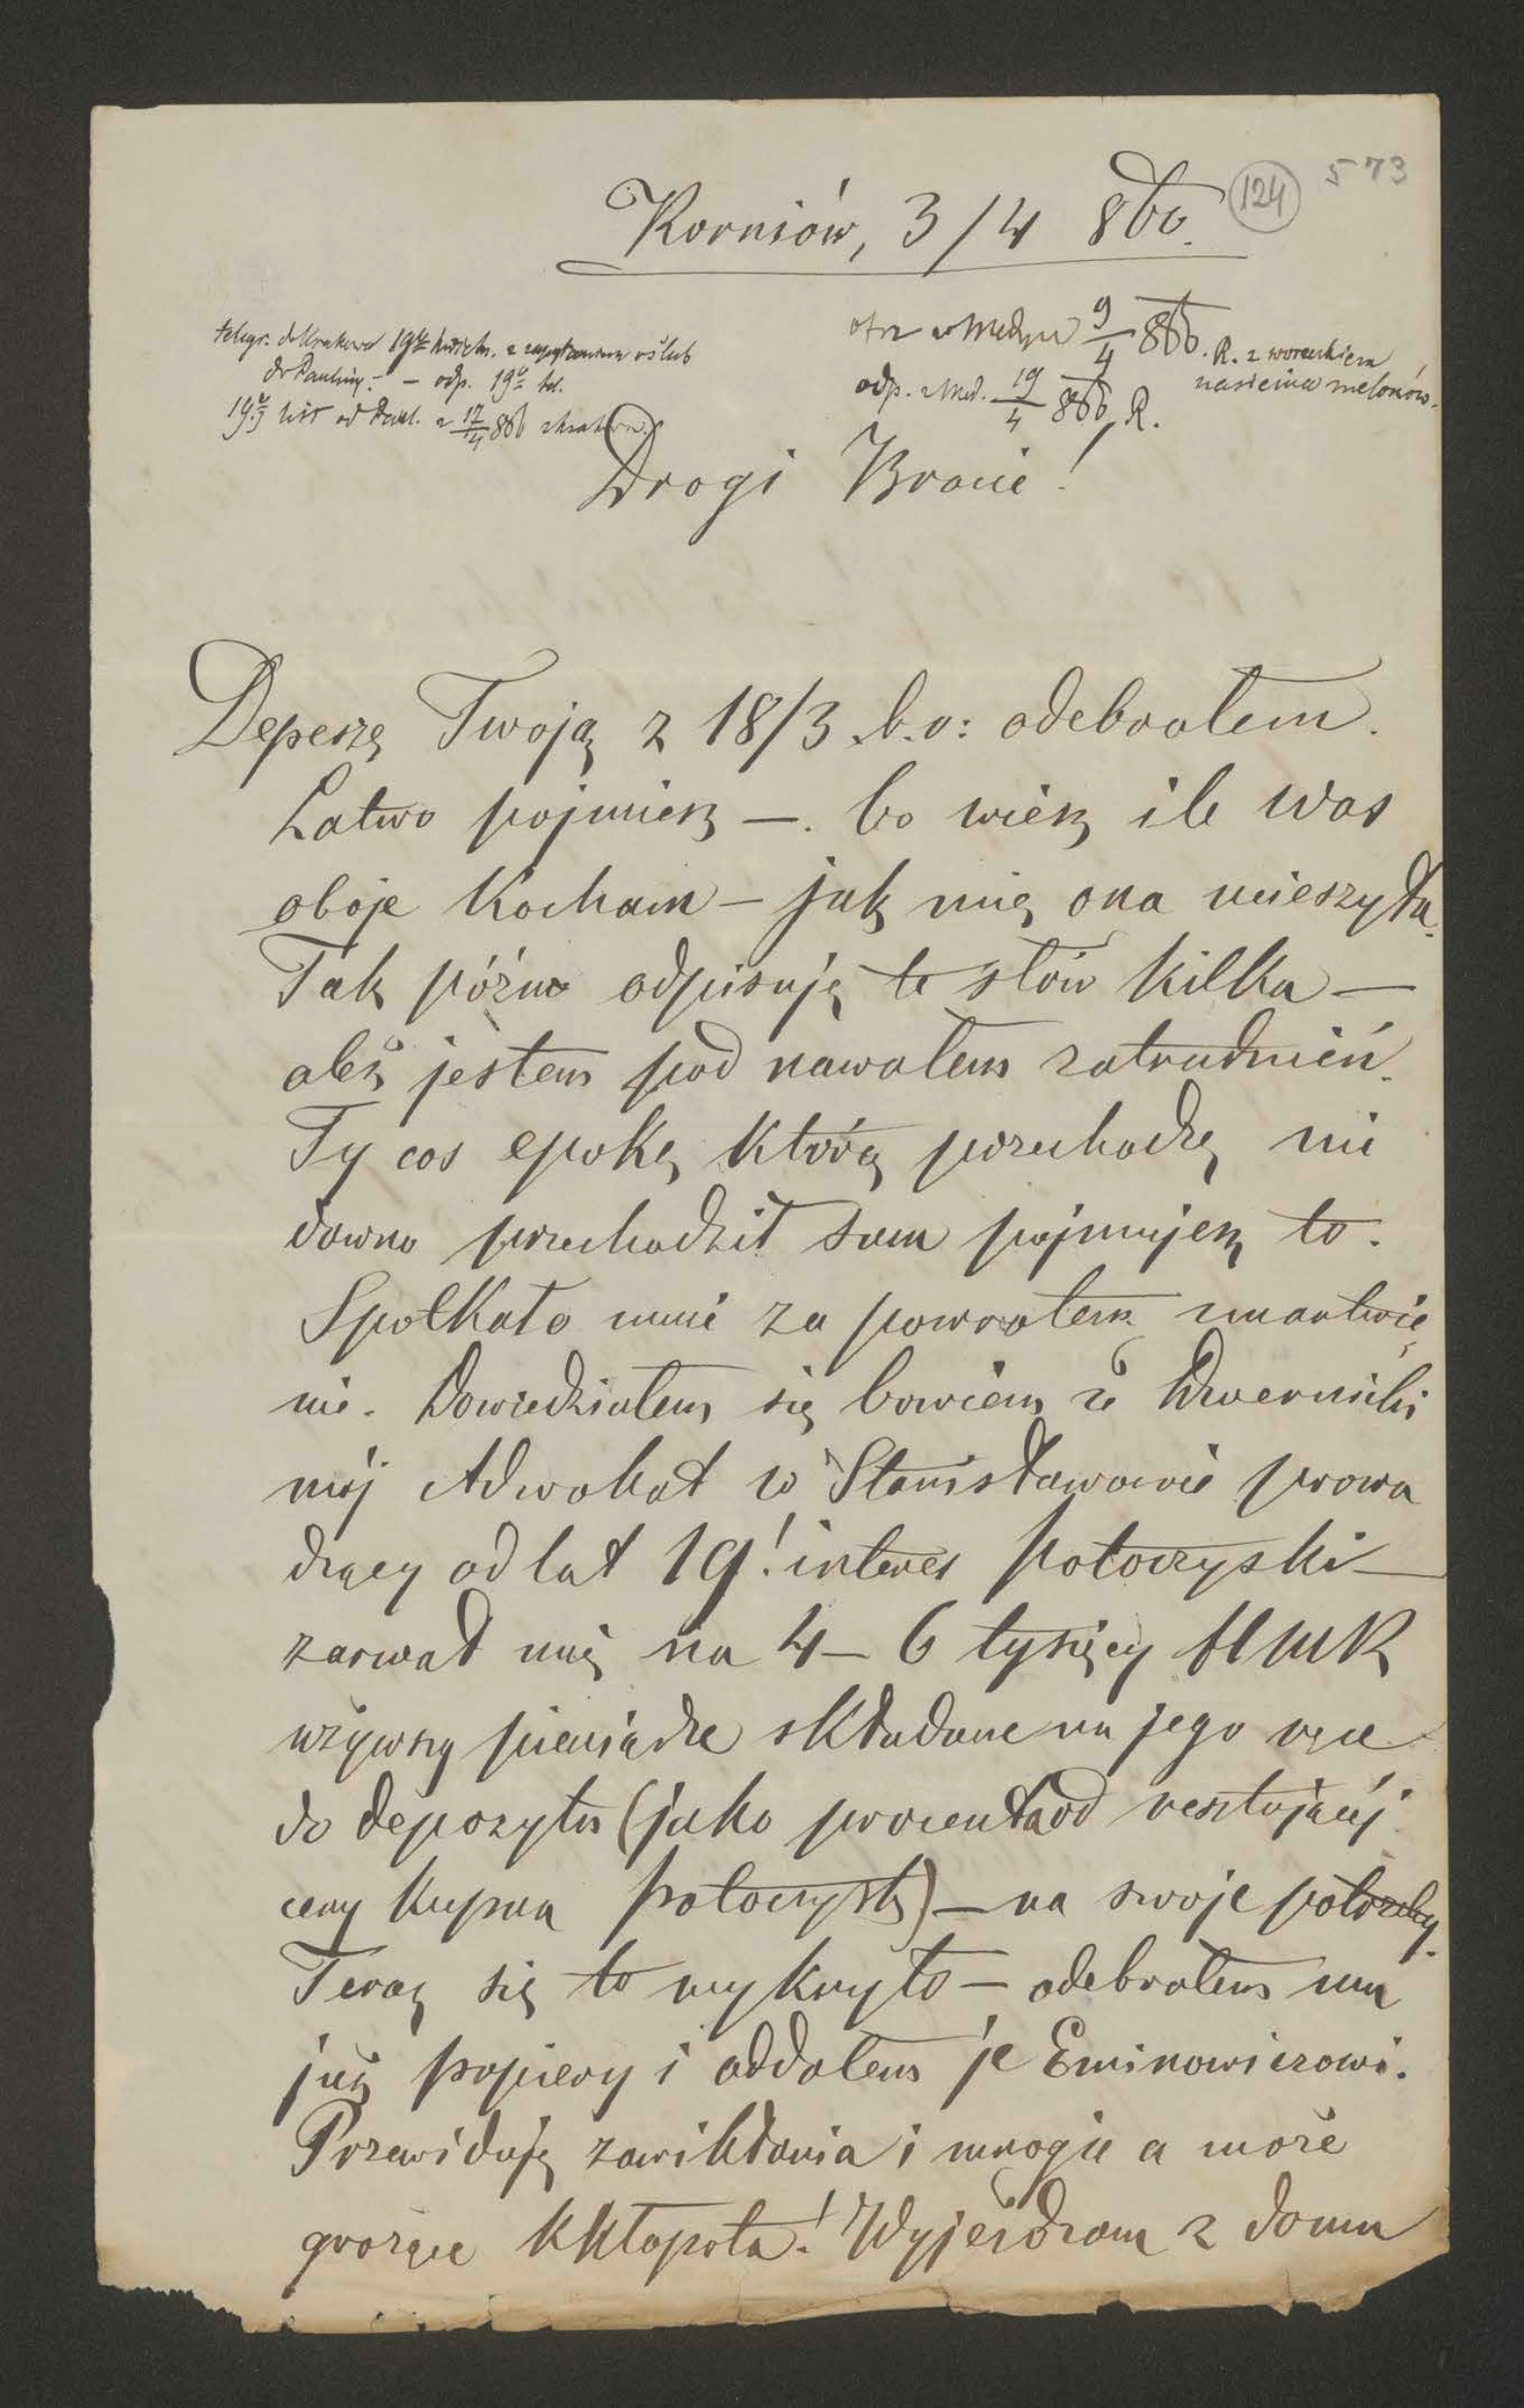 573
124
Korniów, 3/4 866.
telegr. do Krakowa 19go kwietn. z zapytaniem o ślub
do Pauliny. — odp. 19go tel.
19go list od Paul. z 17/4 866 z Krakowa.
otrz. w Medyce 9/4 866. R. z woreczkiem
nasienia melonów.
odp. z Med. 19/4 866, R.
Drogi Bracie!
Depeszę Twoją z 18/3 b.r: odebrałem.
Łatwo pojmiesz —. bo wiesz ile Was
oboje Kocham — jak mię ona ucieszyła.
Tak późno odpisuję te słów kilka —
aleś jestem pod nawałem zatrudnień.
Ty coś epokę którą przechodzę nie
dawno przechodził sam pojmujesz to.
Spotkało mnie za powrotem zmartwie
nie. Dowiedziałem się bowiem że Dwernicki
mój Adwokat w Stanisławowie prowa
dzący od lat 19! interes Potoczyski —
zarwał mię na 4–6 tysięcy flMK
używszy pieniądze składane na jego ręce
do depozytu (jako procenta od resztującéj
ceny Kupna Potoczysk) — na swoje potrzeby.
Teraz się to wykryło — odebrałem mu
już papiery i oddałem je Eminowiczowi.
Przewiduję zawikłania i mnogie a może
groźące kłopota! Wyjeżdzam z domu